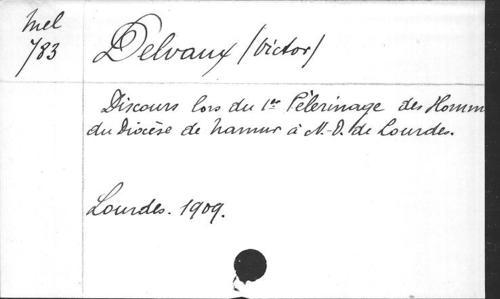 Mel
783
Delvaux (Victor)
Discours lors du 1er Pèlerinage des Homm
du Diocèse de Namur à N.-D. de Lourdes.
Lourdes. 1909.